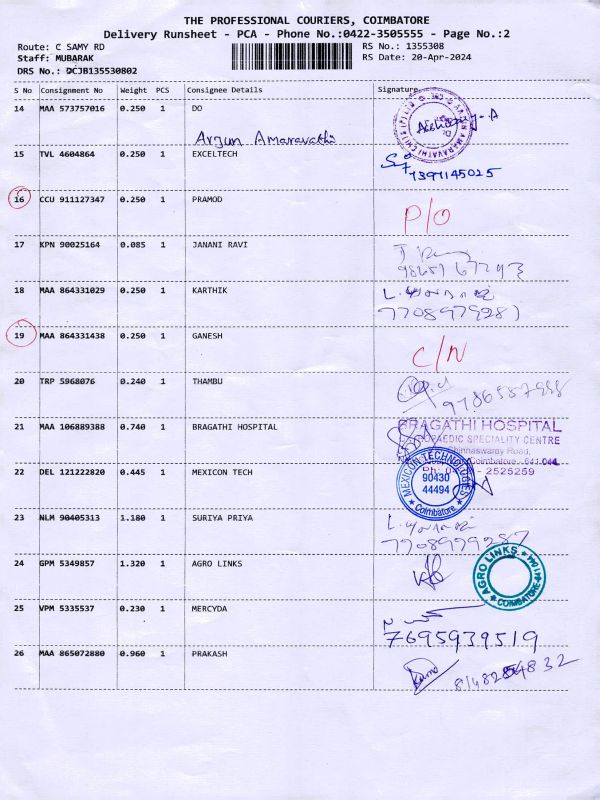 THE PROFESSIONAL COURIERS, COIMBATORE
Delivery Runsheet - PCA - Phone No.:0422-3505555 - Page No.:2
Route: C SAMY RD RS No.: 1355308
Staff: MUBARAK RS Date: 20-Apr-2024
DRS No.: DCJB135530802
S No Consignment No Weight PCS Consignee Details Signature
14 MAA 573757016 0.250 1 DO
Arjun Amaravathi
15 TVL 4604864 0.250 1 EXCELTECH
7397145025
16 CCU 911127347 0.250 1 PRAMOD P/O
17 KPN 90025164 0.085 1 JANANI RAVI
18 MAA 864331029 0.250 1 KARTHIK
7708979287
19 MAA 864331438 0.250 1 GANESH C/N
20 TRP 5968076 0.240 1 THAMBU
21 MAA 106889388 0.740 1 BRAGATHI HOSPITAL BRAGATHI HOSPITAL
SPECIALITY CENTRE
Chinnaswamy Road,
Coimbatore - 641 044
22 DEL 121222820 0.445 1 MEXICON TECH MEXICON TECHNOLOGIES
90430
44494
Coimbatore
2525259
23 NLM 90405313 1.180 1 SURIYA PRIYA
7708979287
24 GPM 5349857 1.320 1 AGRO LINKS AGRO LINKS
COIMBATORE-641 044
25 VPM 5335537 0.230 1 MERCYDA
7695939519
26 MAA 865072880 0.960 1 PRAKASH